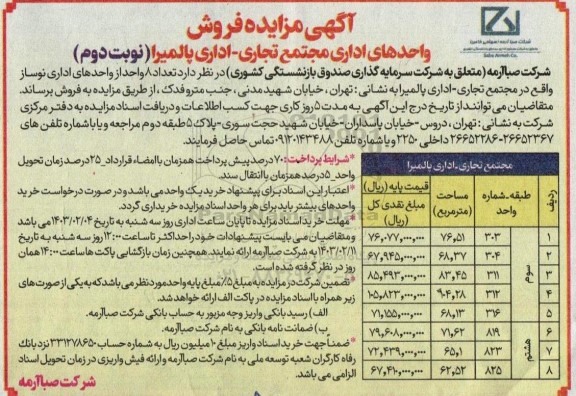 آگهی مزایده فروش
واحدهای اداری مجتمع تجاری-اداری پالمیرا (نوبت دوم)
شرکت صباآرمه (متعلق به شرکت سرمایه گذاری صندوق بازنشستگی کشوری) در نظر دارد تعداد ۸ واحد از واحدهای اداری نوساز
واقع در مجتمع تجاری-اداری پالمیرا به نشانی: تهران، خیابان شهید مدنی، جنب مترو فدک، از طریق مزایده به فروش برساند.
متقاضیان می توانند از تاریخ درج این آگهی به مدت ۵ روز کاری جهت کسب اطلاعات و دریافت اسناد مزایده به دفتر مرکزی
شرکت به نشانی: تهران، دروس-خیابان پاسداران-خیابان شهید حجت سوری-پلاک ۵ طبقه دوم مراجعه و یا با شماره تلفن های
۲۶۶۵۲۲۸۶-۲۶۶۵۲۳۶۷ داخلی ۲۲۵۰ و یا شماره تلفن ۰۹۱۲۰۱۴۳۴۸۸ تماس حاصل فرمایند.
*شرایط پرداخت: ۷۰ درصد پیش پرداخت همزمان با امضاء قرارداد، ۲۵ درصد زمان تحویل
واحد، ۵ درصد همزمان با انتقال سند.
*اعتبار این اسناد برای پیشنهاد خرید یک واحد می باشد و در صورت درخواست خرید
واحدهای بیشتر باید برای هر واحد اسناد مزایده خریداری گردد.
*مهلت خرید اسناد مزایده تا پایان ساعت اداری روز سه شنبه به تاریخ ۱۴۰۳/۰۲/۰۴ می باشد
و متقاضیان می بایست پیشنهادات خود را حداکثر تا ساعت ۱۲:۰۰ روز سه شنبه به تاریخ
۱۴۰۳/۰۲/۱۱ به شرکت صباآرمه ارائه نمایند. همچنین زمان بازگشایی پاکت ها ساعت ۱۴:۰۰ همان
روز در نظر گرفته شده است.
*تضمین شرکت در مزایده به مبلغ ۵٪ مبلغ پایه واحد مورد نظر می باشد که به یکی از صورت های
زیر همراه با اسناد مزایده در پاکت الف ارائه خواهد شد.
الف) رسید بانکی واریز وجه مزبور به حساب بانکی شرکت صباآرمه.
ب) ضمانت نامه بانکی به نام شرکت صباآرمه.
*ضمناً جهت خرید اسناد واریز مبلغ ۱۰ میلیون ریال به شماره حساب ۳۳۱۲۷۸۶۵۰ نزد بانک
رفاه کارگران شعبه توسعه ملی به نام شرکت صباآرمه و ارائه فیش واریزی در زمان تحویل اسناد
الزامی می باشد.
شرکت صباآرمه
مجتمع تجاری-اداری پالمیرا
ردیف طبقه-شماره واحد مساحت (مترمربع) قیمت پایه (ریال) مبلغ نقدی کل (ریال)
۱ سوم ۳۰۳ ۷۶,۵۱ ۷۶,۰۷۷,۰۰۰,۰۰۰
۲ ۳۰۴ ۶۸,۳۷ ۶۷,۹۴۵,۰۰۰,۰۰۰
۳ ۳۱۱ ۸۳,۴۵ ۸۵,۴۹۳,۰۰۰,۰۰۰
۴ ۳۱۲ ۹۰۴,۲۸ ۱۰۵,۸۲۳,۰۰۰,۰۰۰
۵ ۳۱۶ ۶۸,۱۳ ۷۱,۱۵۵,۰۰۰,۰۰۰
۶ هشتم ۸۱۹ ۷۱,۶۲ ۷۹,۶۰۸,۰۰۰,۰۰۰
۷ ۸۲۳ ۶۵,۱ ۷۲,۴۳۹,۰۰۰,۰۰۰
۸ ۸۲۵ ۶۲,۵۲ ۶۷,۴۱۰,۰۰۰,۰۰۰